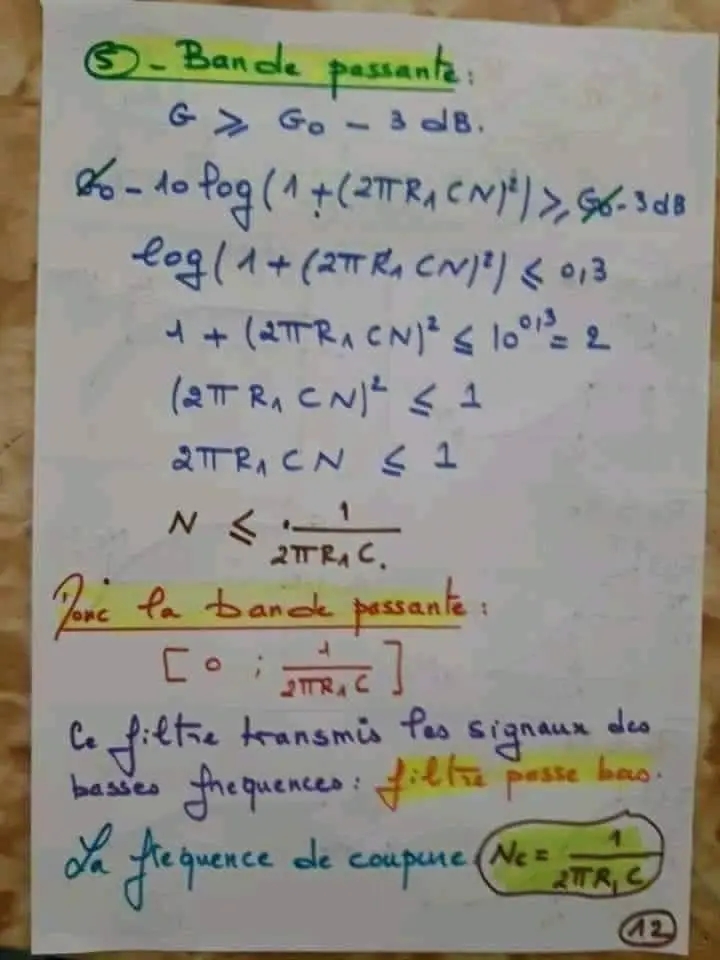 5 - Bande passante :
G ⩾ G0 - 3 dB.
G0 - 10 log(1 + (2πR1 CN)²) ⩾ G0 - 3 dB
log(1 + (2πR1 CN)²) ⩽ 0,3
1 + (2πR1 CN)² ⩽ 10^0,3 = 2
(2πR1 CN)² ⩽ 1
2πR1 CN ⩽ 1
N ⩽ 1/(2πR1 C.)
Donc la bande passante :
[0 ; 1/(2πR1 C)]
Ce filtre transmis les signaux des
basses frequences : filtre passe bas.
La frequence de coupure Nc = 1/(2πR1 C)
12